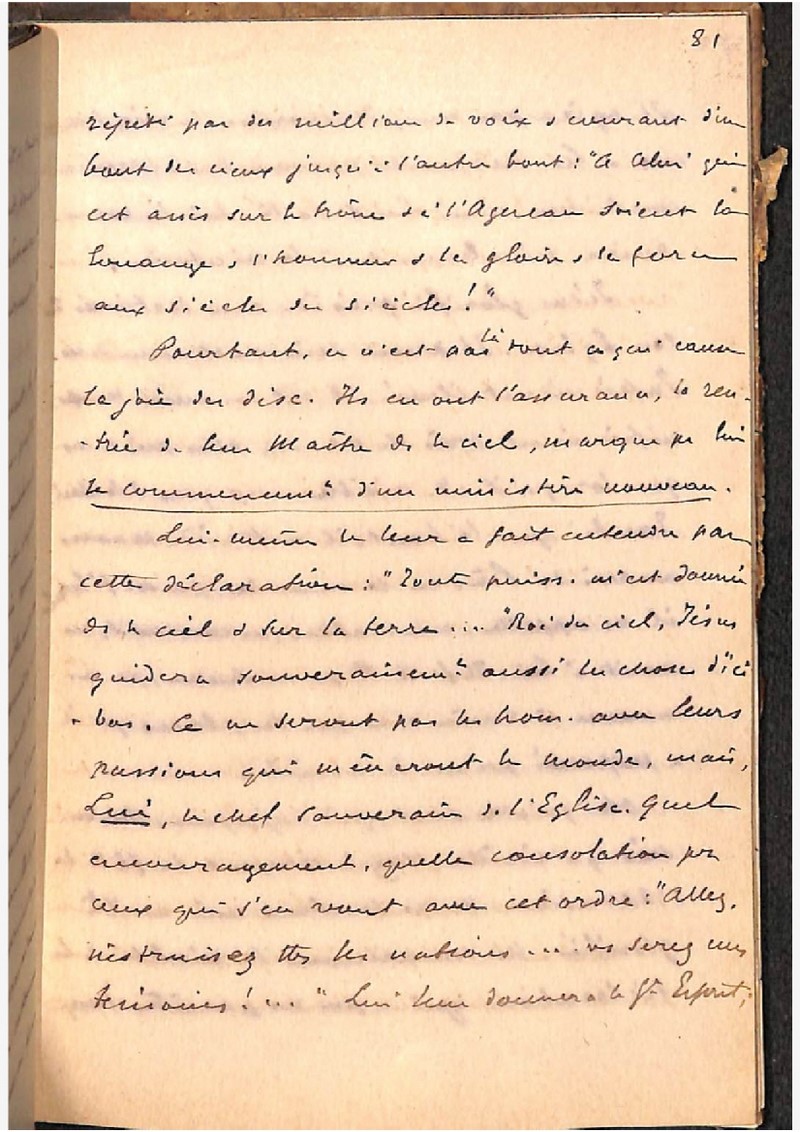 81
répété par des millions de voix & courant d'un
bout des cieux jusqu'à l'autre bout : "A Celui qui
est assis sur le trône & à l'Agneau soient la
louange & l'honneur & la gloire & la force
aux siècles des siècles !"
Pourtant, ce n'est pas là tout ce qui cause
la joie des disc. Ils en ont l'assurance, la ren-
-trée de leur Maître ds le ciel, marque pr lui
le commencemt d'un ministère nouveau.
Lui-même le leur a fait entendre par
cette déclaration : "Toute puiss. m'est donnée
ds le ciel & sur la terre... "Roi du ciel, Jésus
guidera souverainemt aussi les choses d'ici
-bas. Ce ne seront pas les hom. avec leurs
passions qui mèneront le monde, mais,
Lui, le chef souverain de l'Eglise. Quel
encouragement, quelle consolation pr
ceux qui s'en vont avec cet ordre : "Allez,
instruisez ttes les nations ... vs serez mes
témoins !..." Lui leur donnera le St Esprit,